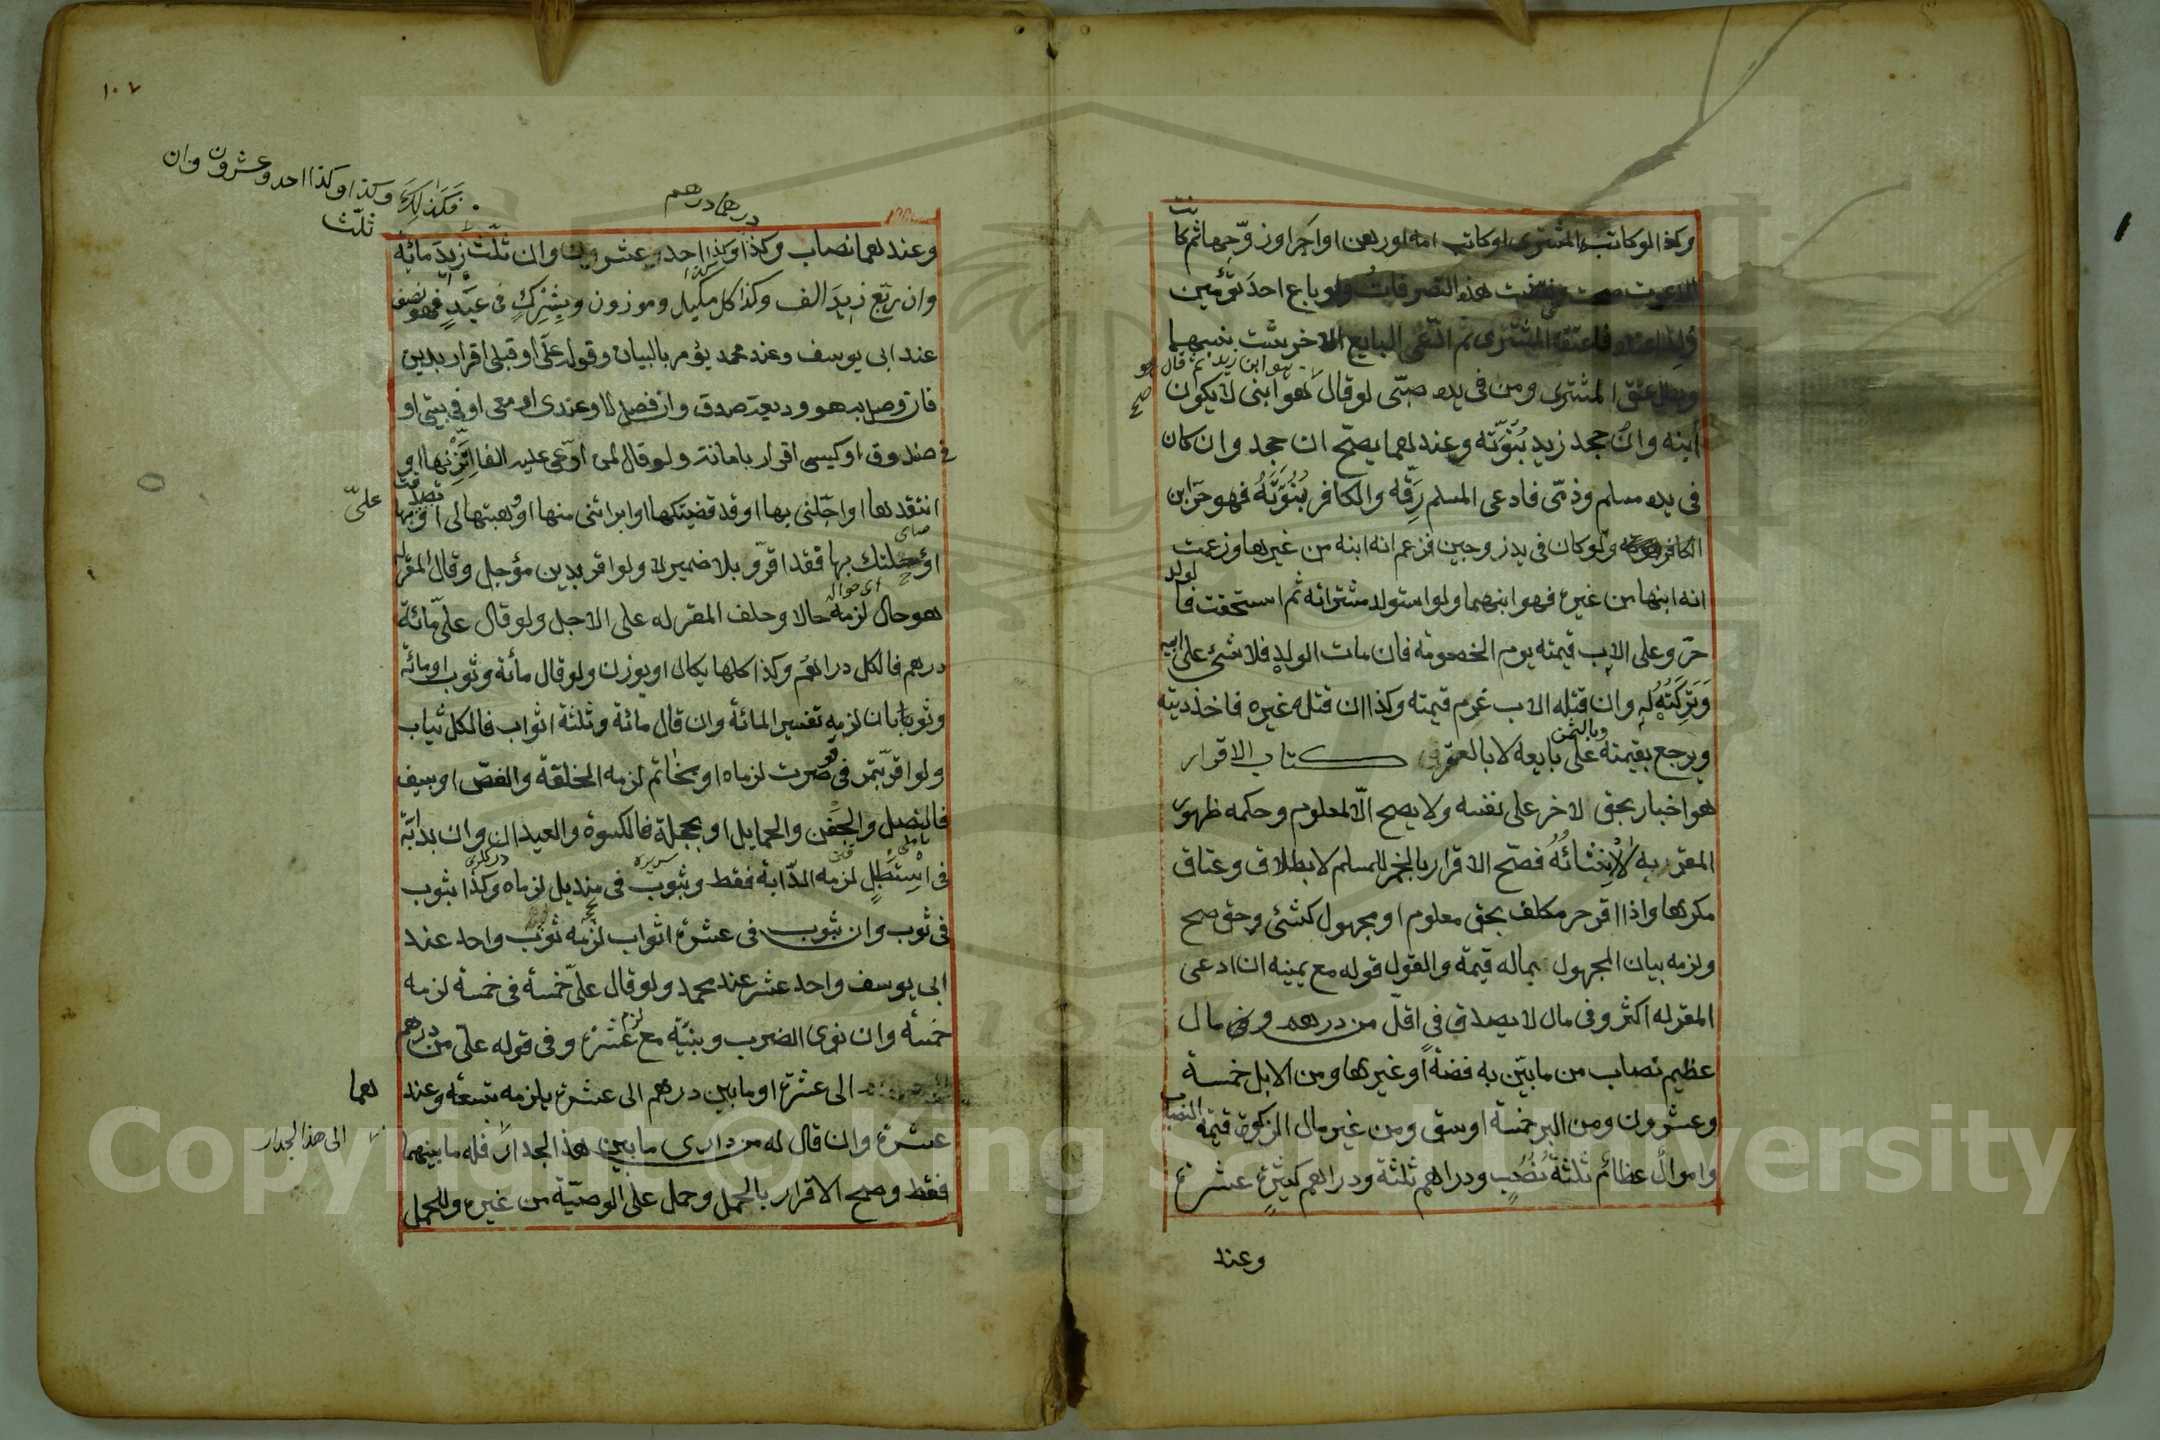 وكذا لو كاتب المشترى او كاتب امه او رهن او اجر او زوجها ثم كا
نت
الدعوت صحت ونقضت هذه التصرفات ولو باع احد توئمين
ولدا عنده فاعتقه المشترى ثم ادعى البايع الاخر ثبت نسبهما
هو ابن زيد ثم قال هو
صح
وبطل عتق المشترى ومن فى يده صبى لو قال هو ابنى لا يكون
ابنه وان جحد زيد بنوته وعندهما يصح ان جحد وان كان
فى يد مسلم وذمى فادعى المسلم رقه والكافر بنوته فهو حر ابن
الكافر ولو كان فى يد زوجين فزعم انه ابنه من غيرها وزعمت
انه ابنها من غيره فهو ابنهما ولو استولد مشتراته ثم استحقت فا
لولد
حر وعلى الاب قيمته يوم الخصومة فان مات الولد فلا شئ على ابيه
وتركته له وان قتله الاب غرم قيمته وكذا ان قتله غيره فاخذ ديته
وبالثمن
ويرجع بقيمته على بايعه لا بالعقر كتاب الاقرار
هو اخبار بحق لاخر على نفسه ولا يصح الا لمعلوم وحكمه ظهور
المقر به لا انشائه فصح الاقرار بالخمر للمسلم لا بطلاق وعتاق
مكرها واذا اقر حر مكلف بحق معلوم او مجهول كشئ وحق صح
ولزمه بيان المجهول بماله قيمة والقول قوله مع يمينه ان ادعى
المقر له اكثر وفى مال لا يصدق فى اقل من درهم ومن مال
عظيم نصاب من ما بين به فضة او غيرها ومن الابل خمسة
وعشرون ومن البر خمسة اوسق ومن غير مال الزكوة قيمة النصاب
واموال عظائم ثلثة نصب ودراهم ثلثة ودراهم كثيرة عشرة
وعند
١٠٧
فكذلك وكذا وكذا احد وعشرون وان
ثلث
درهما درهم
وعندهما نصاب وكذا وكذا احد وعشرون وان ثلث زيد مائة
وان ربع زيد الف وكذا كل مكيل وموزون وبشرك فى عبد فهو نصف
عند ابى يوسف وعند محمد يؤمر بالبيان وقوله على او قبلى اقرار بدين
فان وصل به هو وديعة صدق وان فصل لا وعندى او معى او فى بيتى او
فى صندوق او كيسى اقرار بامانة ولو قال لمن ادعى عليه الفا اتزنها او
انتقدها او اجلنى بها او قد قضيتكها او ابراتنى منها او وهبتها لى او تصدقت بها
علىّ
او احلتك بها فقد اقر وبلا ضمير لا ولو اقر بدين مؤجل وقال المقر له
هو حال لزمه حالا وحلف المقر له على الاجل ولو قال على مائة
درهم فالكل دراهم وكذا كلها يكال او يوزن ولو قال مائة وثوب او مائة
وثوبان لزمه تفسير المائة وان قال مائة وثلثة اثواب فالكل ثياب
ولو اقر بتمر فى قوصرت لزماه او بخاتم لزمه الحلقة والفص او سيف
فالنصل والجفن والحمايل او بحجلة فالكسوة والعيدان وان بدابة
فى اسطبل لزمه الدابة فقط وبثوب فى منديل لزماه وكذا بثوب
فى ثوب وان بثوب فى عشرة اثواب لزمه ثوب واحد عند
ابى يوسف واحد عشر عند محمد ولو قال على خمسة فى خمسة لزمه
خمسة وان نوى الضرب وبنية مع عشرة وفى قوله على من درهم
الى عشرة او ما بين درهم الى عشرة يلزمه تسعة وعند
هما
عشرة وان قال له من دارى ما بين هذا الجدار فله ما بينهما
الى هذا الجدار
فقط وصح الاقرار بالحمل وحمل على الوصية من غيره وللحمل
Copyright © King Saud University
1957